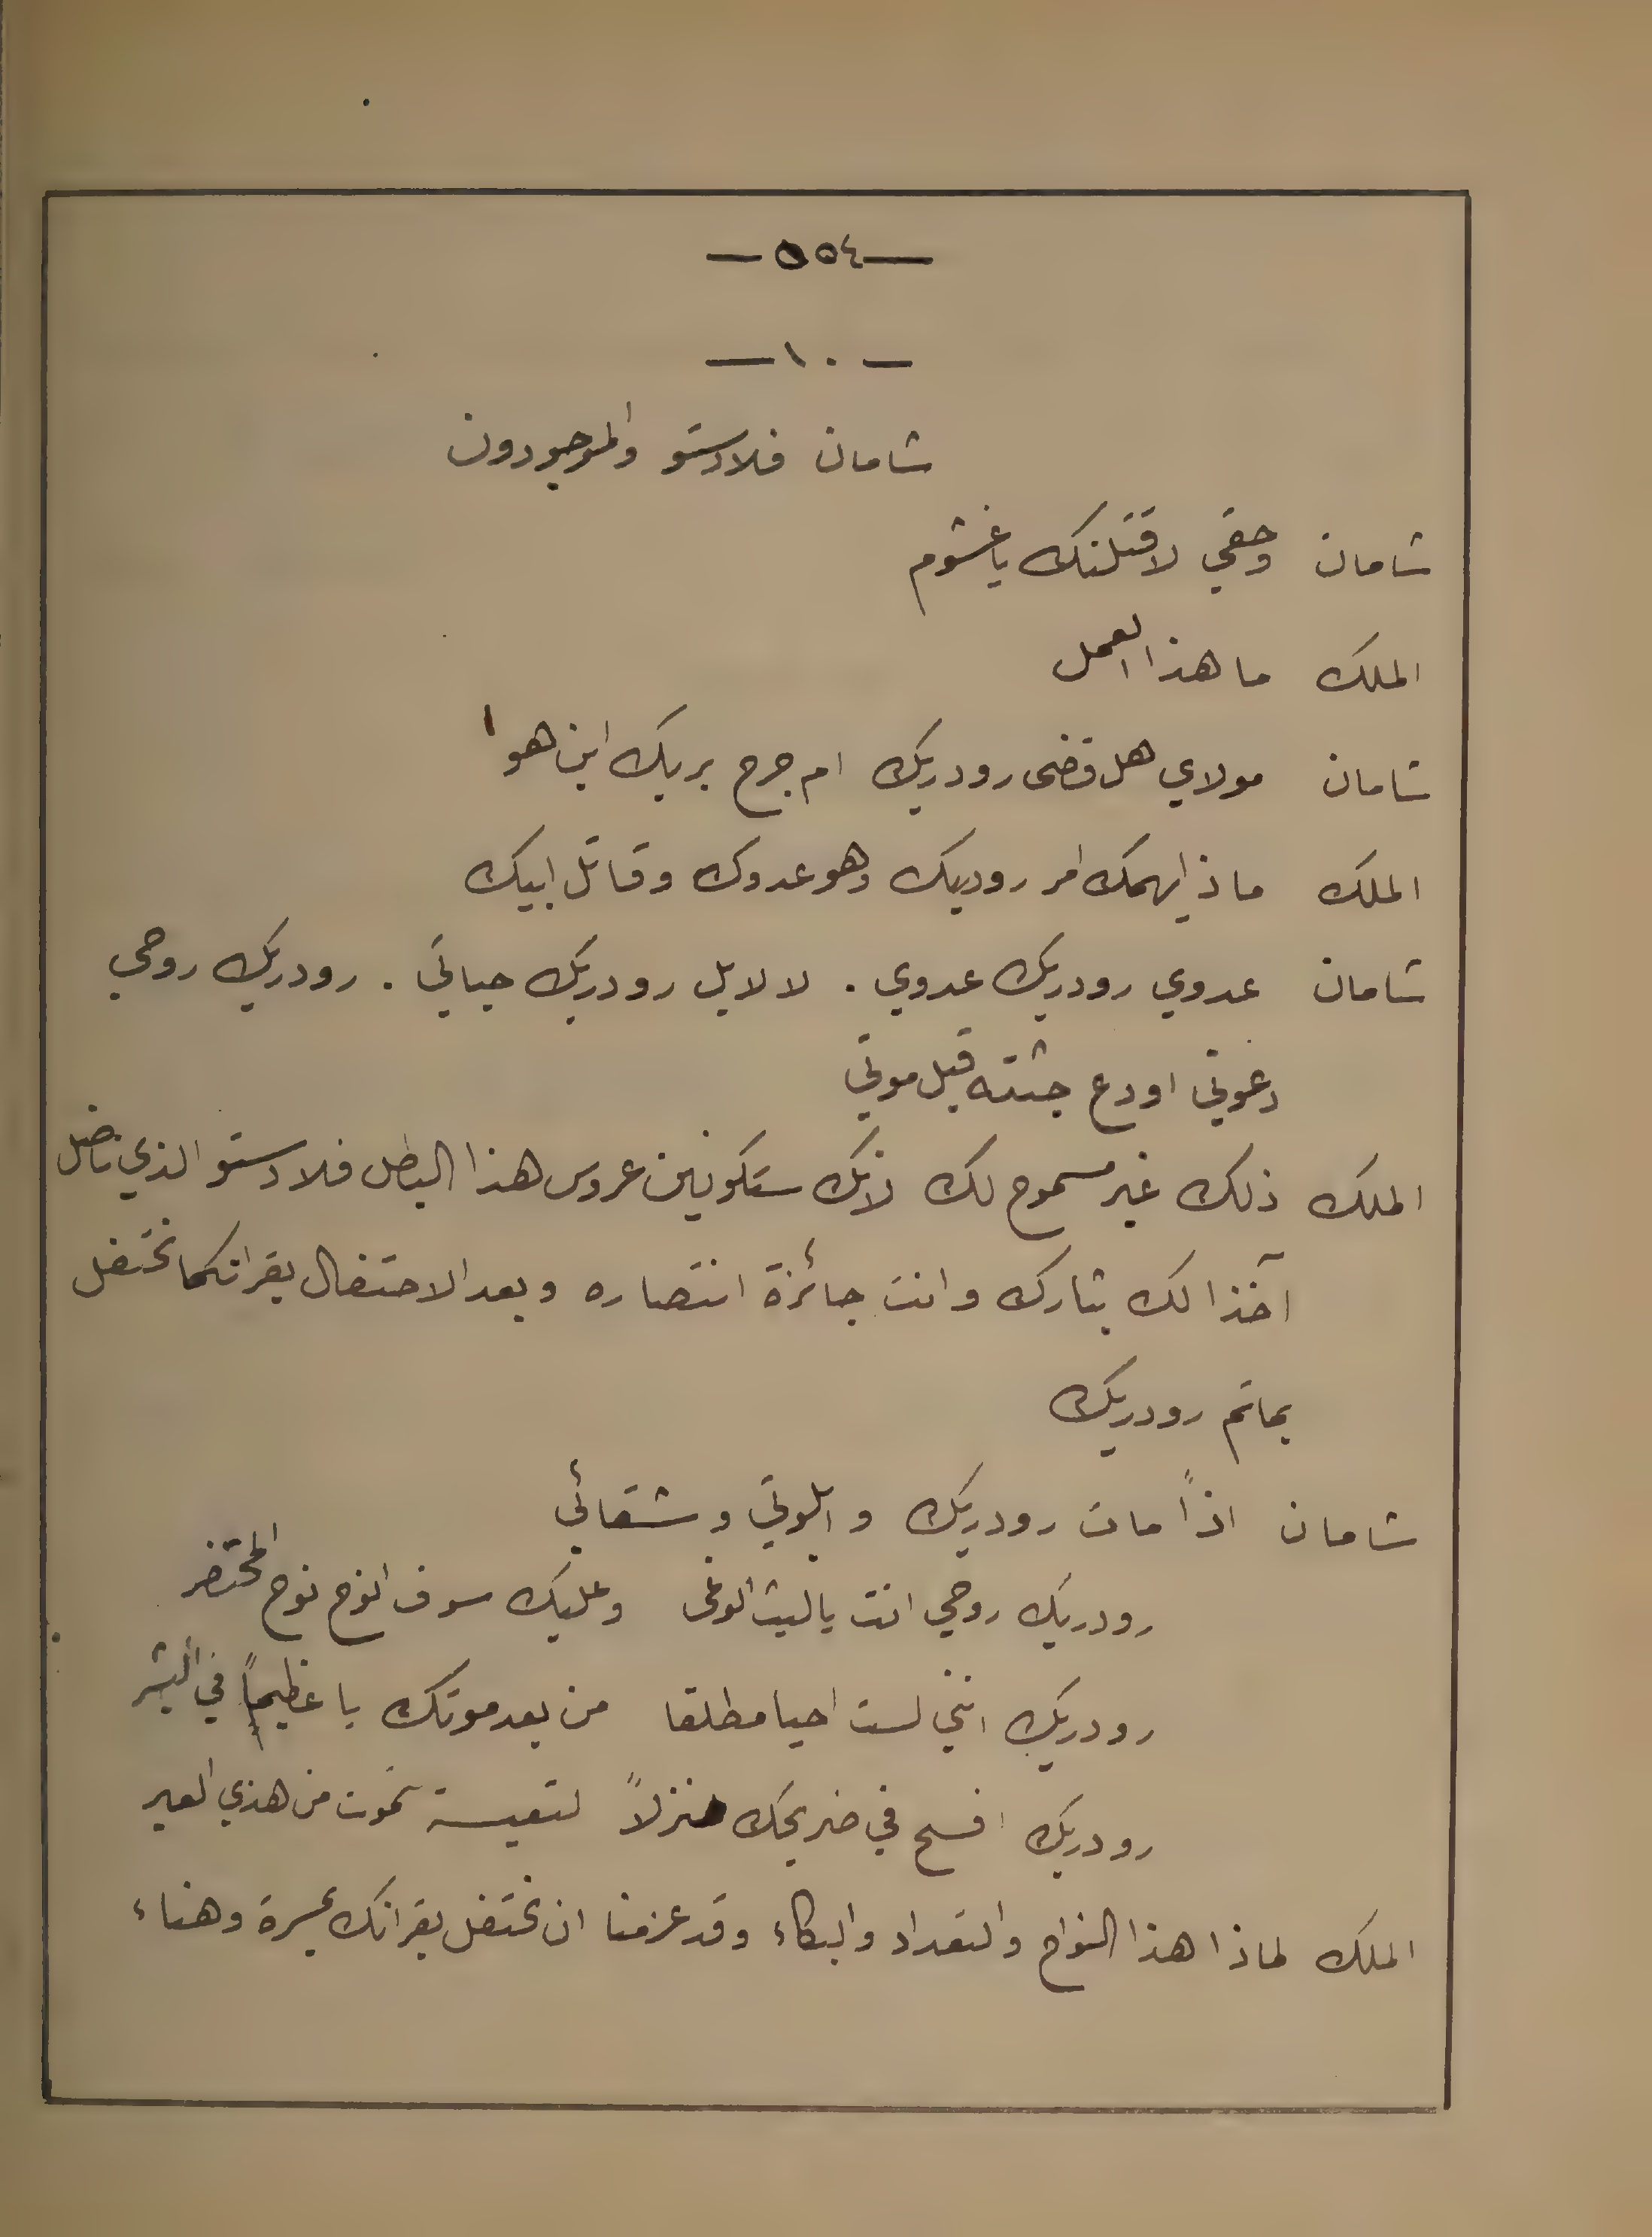 —٥٥٤—
— ١٠ —
شامان فلادستو والموجودون
شامان وحقي لاقتلنك ياغشوم
الملك ما هذا العمل
شامان مولاي هل قضى رودريك ام جرح بربك اين هو ا
الملك ماذا يهمك امر رودريك وهو عدوك وقاتل ابيك
شامان عدوي رودريك عدوي . لا لا بل رودريك حياتي . رودريك روحي
دعوني اودع جثته قبل موتي
الملك ذلك غير مسموح لك لانك ستكونين عروس هذا البطل فلادستو الذي ناضل
آخذا لك بثارك وانت جائزة انتصاره وبعد الاحتفال بقرانكما نحتفل
بماتم رودريك
شامان اذاً مات رودريك وابلوتي وشقائي
رودريك روحي انت ياليث الوغى وعليك سوف انوح نوح المحتضر
رودريك انني لست احيا مطلقا من بعد موتك يا عظيماً في البشر
رودريك افسح في ضريحك منزلاً لتعيسة تموت من هذي العبر
الملك لماذا هذا النواح والتعداد والبكاء وقد عزمنا ان نحتفل بقرانك بمسرة وهناء